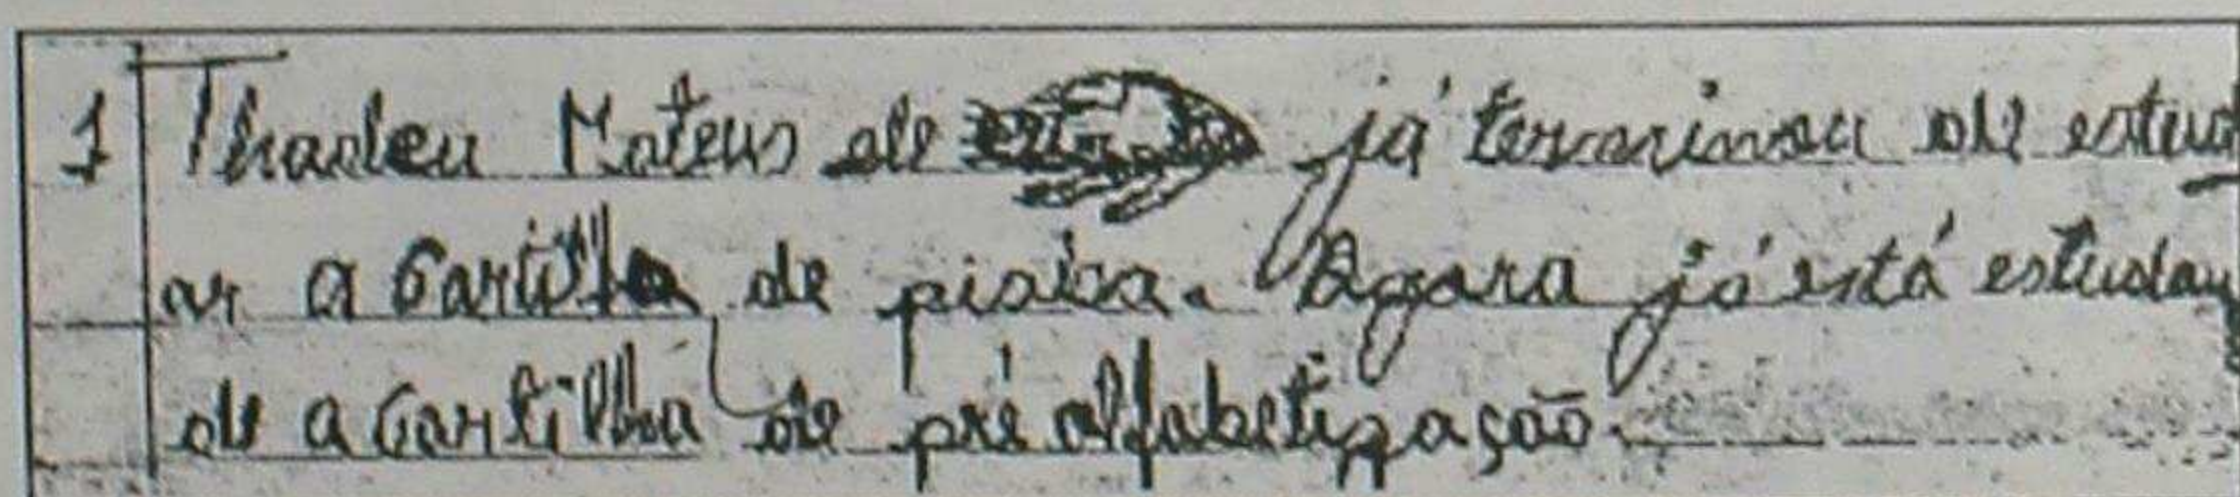 1 Thadeu Mateus de já terminou de estud
ar a Cartilha de piaba. Agora já está estudan
do a Cartilha de pré alfabetização.